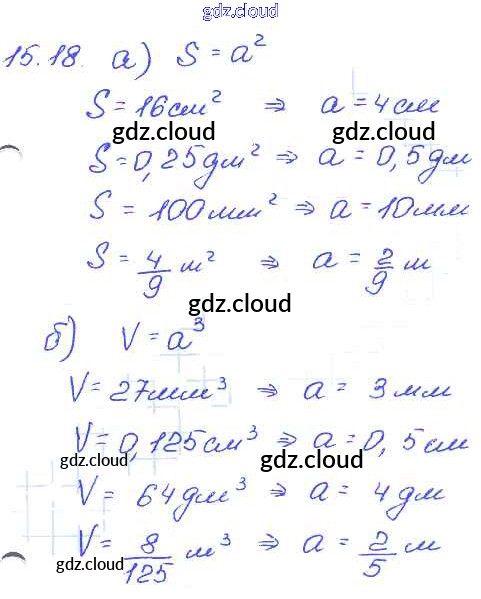 gdz.cloud
15.18. а) S = a²
S = 16 см² ⇒ a = 4 см
gdz.cloud gdz.cloud
S = 0,25 дм² ⇒ a = 0,5 дм
S = 100 мм² ⇒ a = 10 мм
S = 4/9 м² ⇒ a = 2/9 м
gdz.cloud
б) V = a³
V = 27 мм³ ⇒ a = 3 мм
V = 0,125 см³ ⇒ a = 0,5 см
gdz.cloud gdz.cloud
V = 64 дм³ ⇒ a = 4 дм
V = 8/125 м³ ⇒ a = 2/5 м
gdz.cloud gdz.cloud